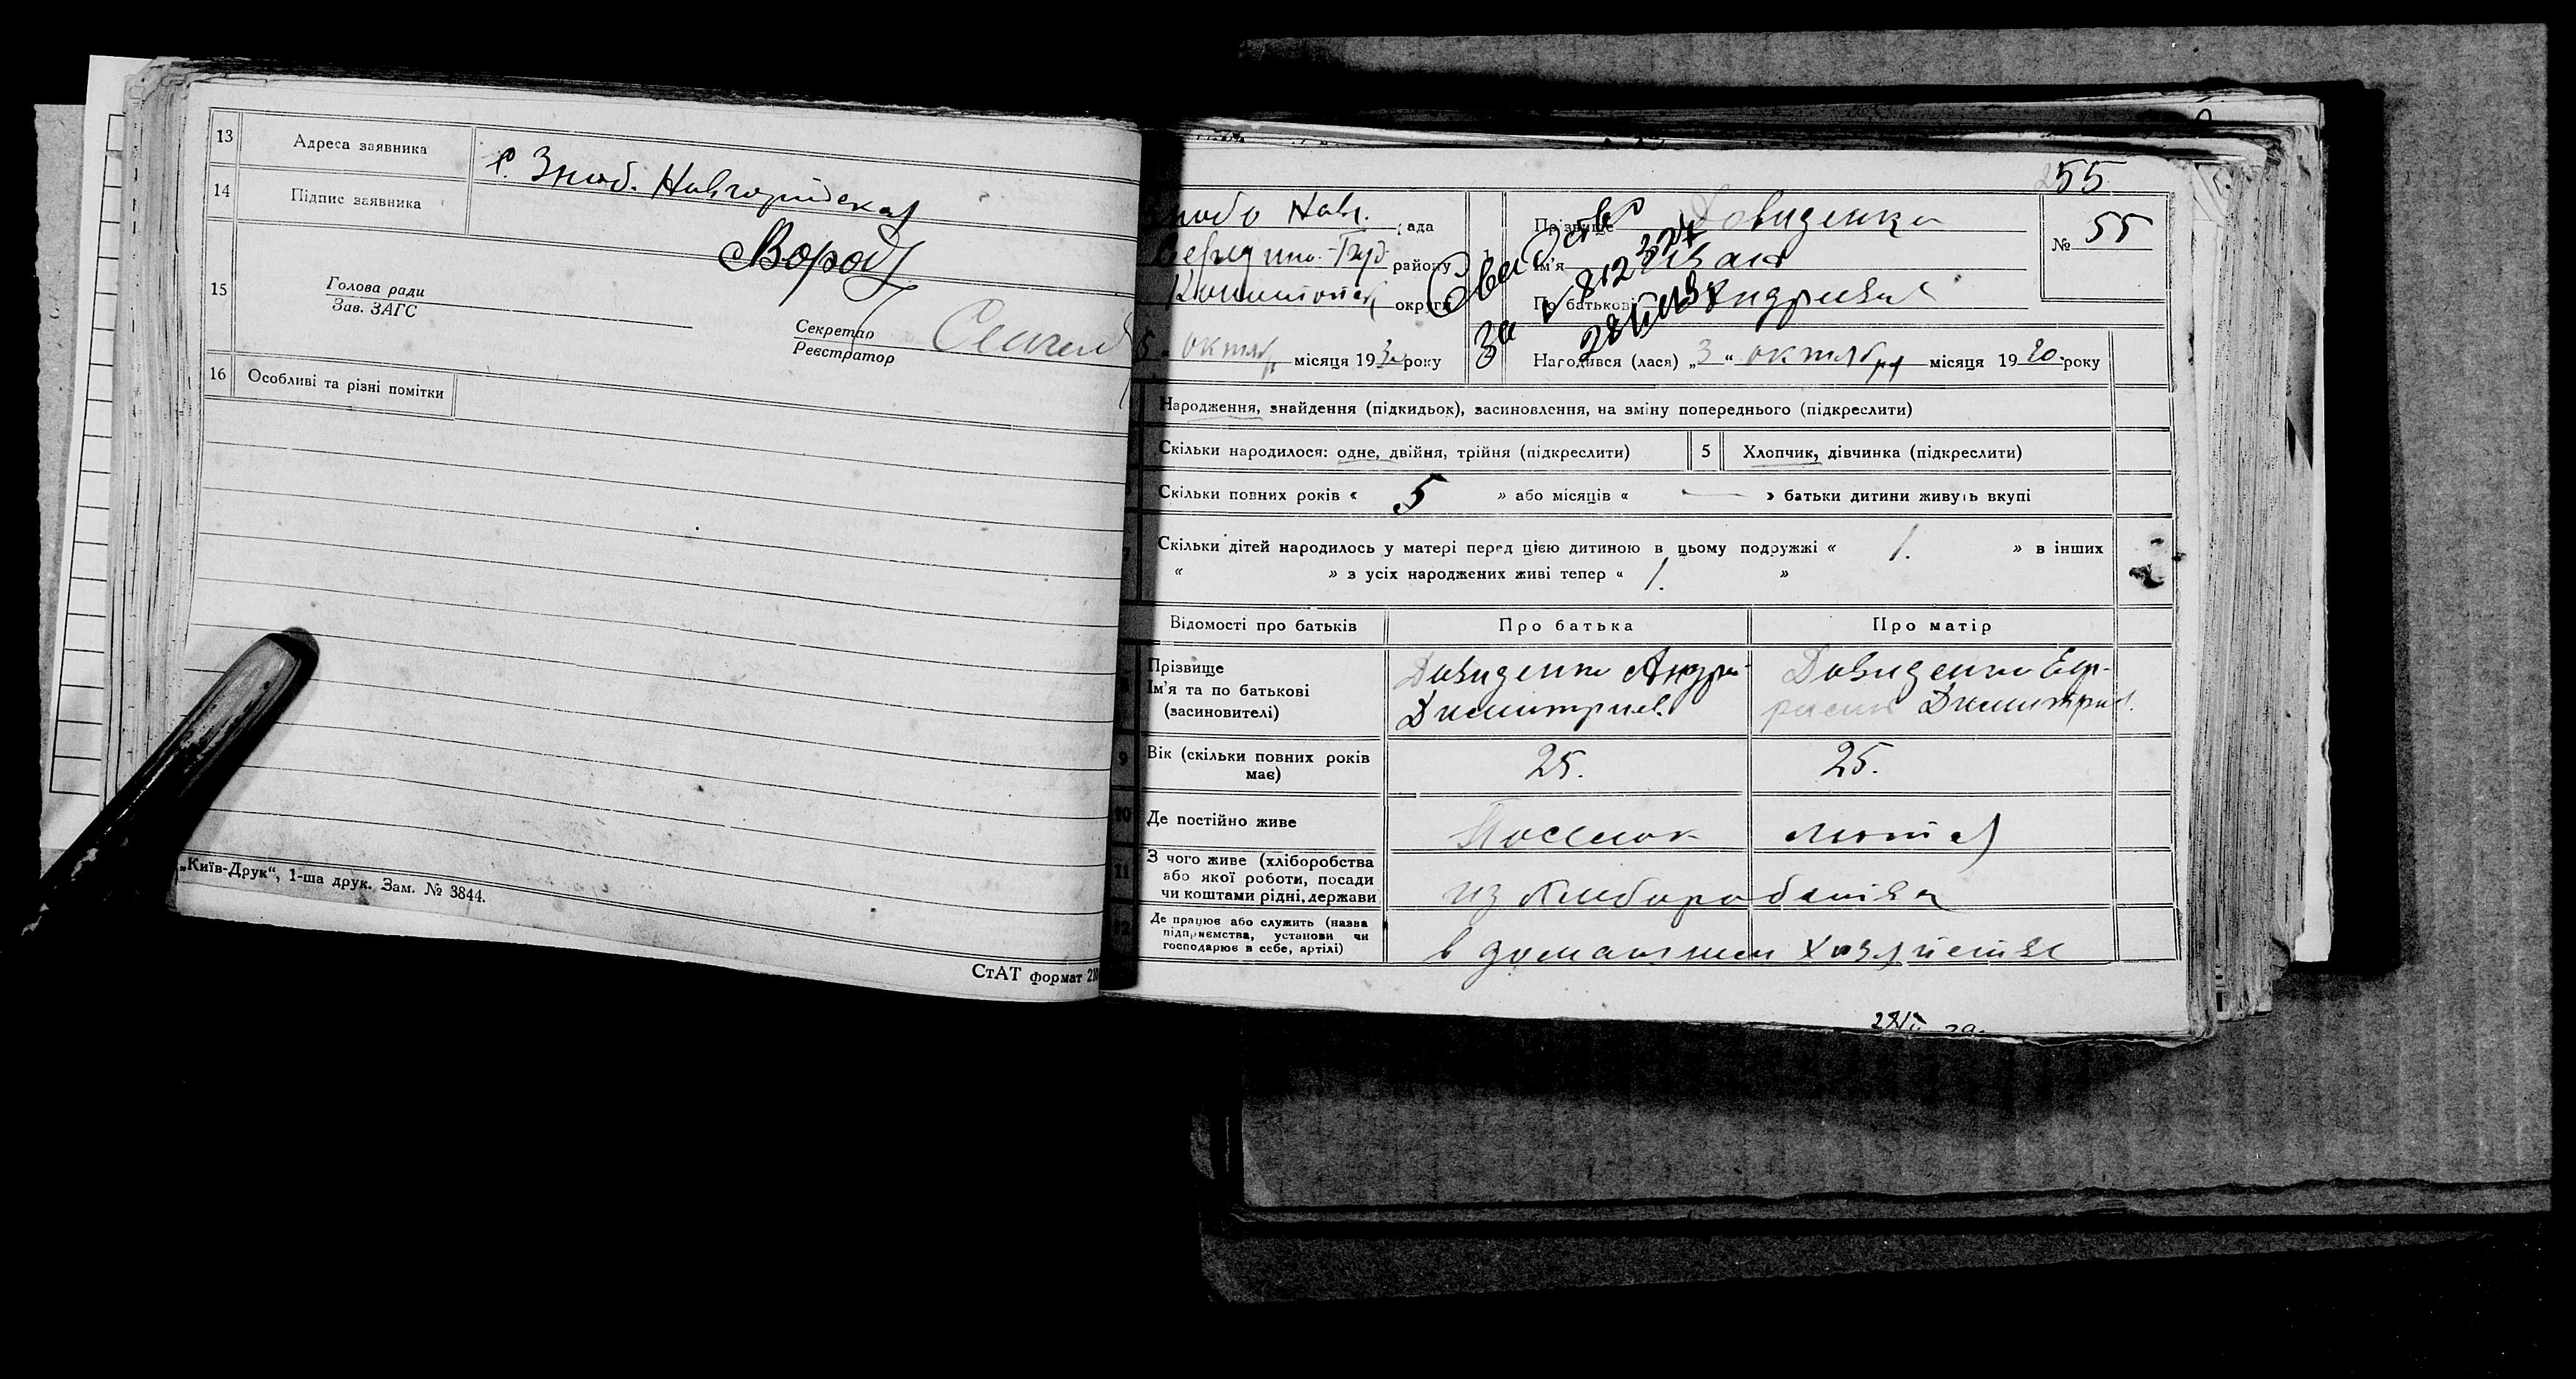 13 Адреса заявника с. Зноб. Новгородская
14 Підпис заявника
15 Голова ради
Зав. ЗАГС
Секретар
Реєстратор
16 Особливі та різні помітки
„Київ-Друк“, 1-ша друк. Зам. № 3844.
СтАТ формат 210
255
Знобо Новг. рада
Середино-Буд району
Конотопск округи
5 октябр місяця 1930 року
Свид в
за V 812327
Прізвище Довиденко
Ім'я Иван
По батькові Андриевич
№ 55
Народився (лася) „3“ октября місяця 1930 року
Народження, знайдення (підкидьок), засиновлення, на зміну попереднього (підкреслити)
Скільки народилося: одне, двійня, трійня (підкреслити) 5 Хлопчик, дівчинка (підкреслити)
Скільки повних років « 5 » або місяців « — » батьки дитини живуть вкупі
7 Скільки дітей народилось у матері перед цією дитиною в цьому подружжі « 1. » в інших
« » з усіх народжених живі тепер « 1. »
Відомості про батьків Про батька Про матір
Прізвище
Ім'я та по батькові
(засиновителі)
Давиденко Андри-
Димитриев.
Давиденко Еф-
росин Димитриев.
9 Вік (скільки повних років має) 25. 25.
10 Де постійно живе Поселок
11 З чого живе (хліборобства
або якої роботи, посади
чи коштами рідні, держави
из хлиборобства
12 Де працює або служить (назва
підприємства, установи чи
господарює в себе, артілі)
в домашнем хозяйстве